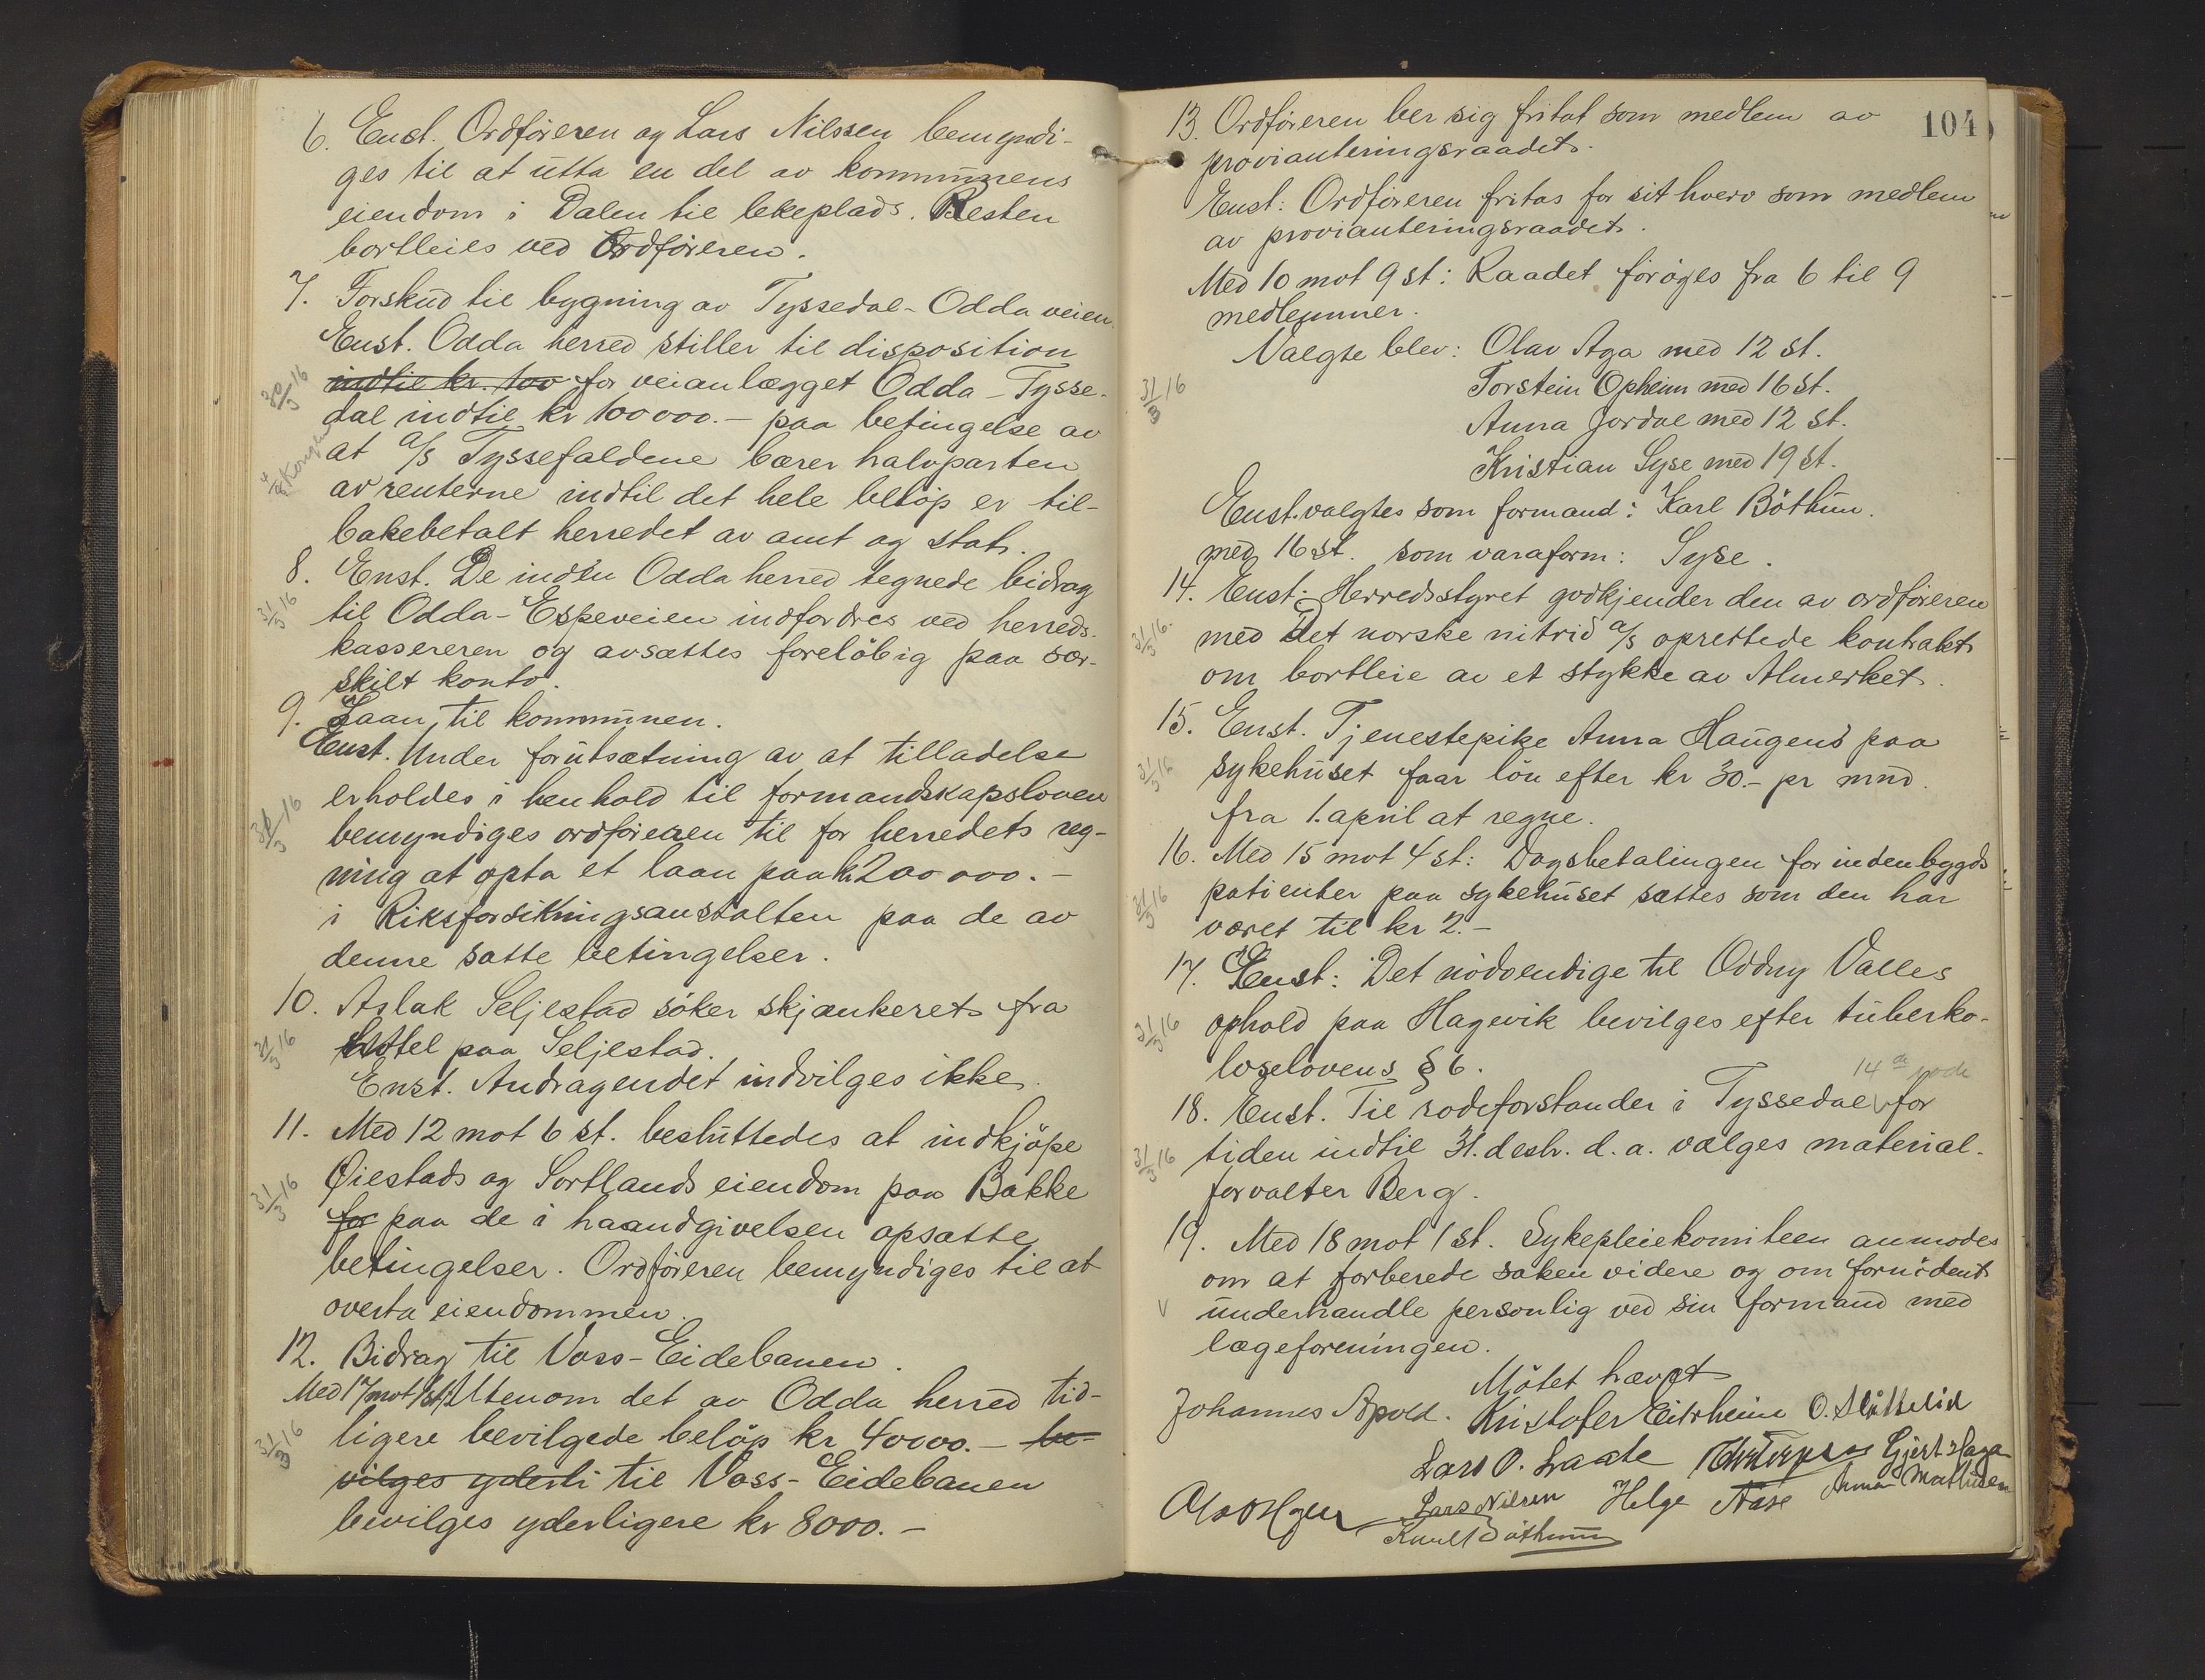 6. Enst. Ordföreren og Lars Nilssen bemyndi-
ges til at utta en del av kommunens
eiendom i Dalen til lekeplads. Resten
bortleies ved Ordföreren.
7. Forskud til bygning av Tyssedal-Odda veien.
Enst. Odda herred stiller til disposition
30/3 16
indtil kr. 100 for veianlægget Odda-Tysse-
dal indtil kr 100000.- paa betingelse av
at a/s Tyssefaldene bærer halvparten
av renterne indtil det hele belöp er til-
bakebetalt herredet av amt og stat.
8. Enst. De inden Odda herred tegnede bidrag
31/3 16
til Odda-Espeveien indfordres ved herreds-
kassereren og avsættes forelöbig paa sær-
skilt konto.
9. Laan til kommunen.
Enst. Under forutsætning av at tilladelse
erholdes i henhold til formandskapsloven
31/3 16
bemyndiges ordföreren til for herredets reg-
ning at opta et laan paa kr 200000.-
i Riksforsikringsanstalten paa de av
denne satte betingelser.
10. Aslak Seljestad söker skjænkeret fra
31/3 16
hotel paa Seljestad.
Enst. Andragendet indvilges ikke.
11. Med 12 mot 6 st. besluttedes at indkjöpe
31/3 16
Øiestads og Sortlands eiendom paa Bakke
for paa de i haandgivelsen opsatte
betingelser. Ordföreren bemyndiges til at
overta eiendommen.
12. Bidrag til Voss-Eidebanen.
Med 17 mot 1 st. Utenom det av Odda herred tid-
31/3 16
ligere bevilgede belöp kr 40000.- be-
vilges yderli til Voss-Eidebanen
bevilges yderligere kr 8000.-
104
13. Ordföreren ber sig fritat som medlem av
provianteringsraadet.
Enst: Ordföreren fritas for sit hverv som medlem
av provianteringsraadet.
Med 10 mot 9 st: Raadet forøges fra 6 til 9
medlemmer.
Valgte blev: Olav Aga med 12 st.
31/3 16
Torstein Opheim med 16 st.
Anna Jordal med 12 st.
Kristian Syse med 19 st.
Enst. valgtes som formand: Karl Böthun.
med 16 st. som varaform: Syse.
14. Enst: Herredsstyret godkjender den av ordföreren
31/3 16.
med Det norske nitrid a/s oprettede kontrakt
om bortleie av et stykke av Almerket.
15. Enst. Tjenestepike Anna Haugens paa
31/3 16
sykehuset faar lön efter kr 30.- pr mnd.
fra 1. april at regne.
16. Med 15 mot 4 st: Dagsbetalingen for indenbygds
31/3 16
patienter paa sykehuset sættes som den har
været til kr 2.-
17. Enst: Det nödvendige til Oddny Valles
31/3 16
ophold paa Hagevik bevilges efter tuberku-
loselovens § 6.
14de rode
18. Enst. Til rodeforstander i Tyssedal for
31/3 16
tiden indtil 31. desbr. d.a. vælges material-
forvalter Berg.
19. Med 18 mot 1 st. Sykepleiekomiteen anmodes
om at forberede saken videre og om fornödent
V
underhandle personlig ved sin formand med
lægeforeningen.
Mötet hævet
Johannes Apold. Kristofer Eitrheim O. Slåttelid
Lars O. Laate Gjert Haga
Lars Nilsen Helge Aase Anna Mathisen
Karl Böthun